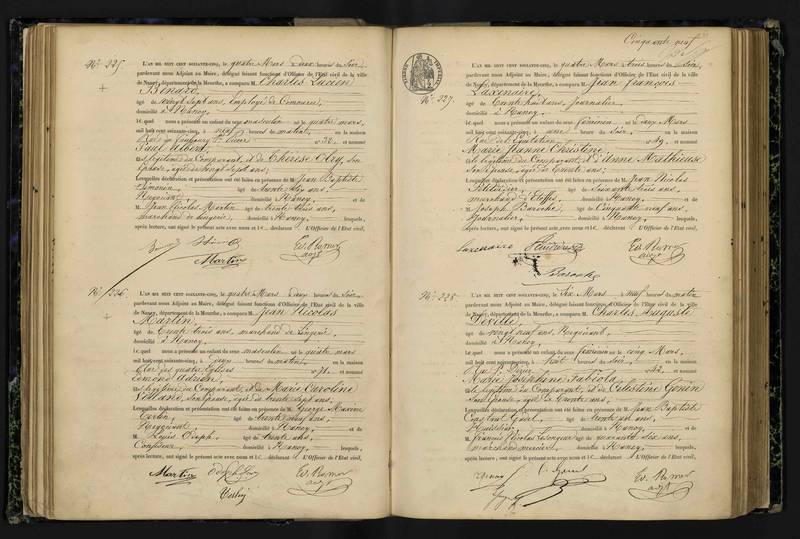 No. 225
L'AN MIL HUIT CENT SOIXANTE-CINQ, le quatre Mars deux heures du soir
pardevant nous Adjoint au Maire, délégué faisant fonctions d'Officier de l'Etat civil de la ville
de Nancy, département de la Meurthe, a comparu M. Charles Lucien
Bénard
âgé de vingt sept ans, Employé de Commerce,
domicilié à Nancy,
lequel nous a présenté un enfant du sexe masculin né le quatre mars,
mil huit cent soixante-cinq, à neuf heures du matin, en la maison
Rue du faubourg St Pierre no 32,
Paul Albert,
fils légitime du Comparant, et de Thérèse Olry, Son
Epouse, agée de vingt sept ans;
Lesquelles déclaration et présentation ont été faites en présence de M. Jean Baptiste
Simonin âgé de trente six ans,
Négociant domicilié à Nancy, et de
M. Jean Nicolas Martin âgé de trente trois ans,
marchand de lingerie, domicilié à Nancy, lesquels,
après lecture, ont signé le présent acte avec nous et le déclarant L'Officier de l'Etat civil,
Martin
No. 226
L'AN MIL HUIT CENT SOIXANTE-CINQ, le quatre Mars deux heures du soir
pardevant nous Adjoint au Maire, délégué faisant fonctions d'Officier de l'Etat civil de la ville
de Nancy, département de la Meurthe, a comparu M. Jean Nicolas
Martin,
âgé de trente trois ans, marchand de lingerie
domicilié à Nancy,
lequel nous a présenté un enfant du sexe masculin né le quatre mars
mil huit cent soixante-cinq, à heures du matin, en la maison
des quatre Eglises no 71,
Edmond Adrien,
fils légitime du Comparant, et de Marie Caroline
Volland, Son Epouse, agée de trente sept ans;
Lesquelles déclaration et présentation ont été faites en présence de M. George Maxime
âgé de trente neuf ans,
Négociant, domicilié à Nancy, et de
M. Louis âgé de trente ans,
Confiseur domicilié à Nancy, lesquels,
après lecture, ont signé le présent acte avec nous et le déclarant L'Officier de l'Etat civil,
Martin
Cinquante neuf
No. 227.
L'AN MIL HUIT CENT SOIXANTE-CINQ, le quatre Mars trois heures du soir,
pardevant nous Adjoint au Maire, délégué faisant fonctions d'Officier de l'Etat civil de la ville
de Nancy, département de la Meurthe, a comparu M. Jean François
Laxenaire
âgé de trente huit ans, Journalier
domicilié à Nancy,
lequel nous a présenté un enfant du sexe féminin né le deux Mars
mil huit cent soixante-cinq, à une heures du soir, en la maison
Rue de l'Equitation no 49,
Marie Jeanne Christine,
fille légitime du Comparant, et d'Anne Mathieuse
Son Epouse, agée de trente ans;
Lesquelles déclaration et présentation ont été faites en présence de M. Jean Nicolas
âgé de Soixante trois ans,
marchand d'Etoffes, domicilié à Nancy, et de
M. Joseph Baroche, âgé de Cinquante neuf ans,
Journalier, domicilié à Nancy, lesquels,
après lecture, ont signé le présent acte avec nous et le déclarant L'Officier de l'Etat civil,
Laxenaire
Baroche
No. 228.
L'AN MIL HUIT CENT SOIXANTE-CINQ, le Six Mars neuf heures du matin
pardevant nous Adjoint au Maire, délégué faisant fonctions d'Officier de l'Etat civil de la ville
de Nancy, département de la Meurthe, a comparu M. Charles Auguste
Deville,
âgé de vingt neuf ans, Négociant,
domicilié à Nancy,
lequel nous a présenté un enfant du sexe féminin né le cinq Mars,
mil huit cent soixante-cinq, à huit heures du soir, en la maison
Rue St Dizier, no 42,
Marie Joséphine Fabiola,
fille légitime du Comparant, et de Célestine Gonin
Son Epouse, agée de trente ans,
Lesquelles déclaration et présentation ont été faites en présence de M. Jean Baptiste
âgé de trente un ans,
Huissier, domicilié à Nancy, et de
M. François Nicolas âgé de quarante six ans,
marchand domicilié à Nancy, lesquels,
après lecture, ont signé le présent acte avec nous et le déclarant L'Officier de l'Etat civil,